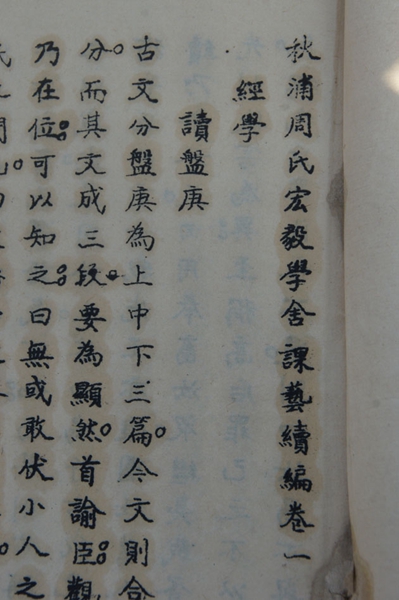 秋浦周氏宏毅學舍課藝續編卷一
經學
讀盤庚
古文分盤庚為上中下三篇。今文則合
分。而其文成三段。要為顯然。首諭臣。觀
乃在位。可以知之。曰無或敢伏小人之